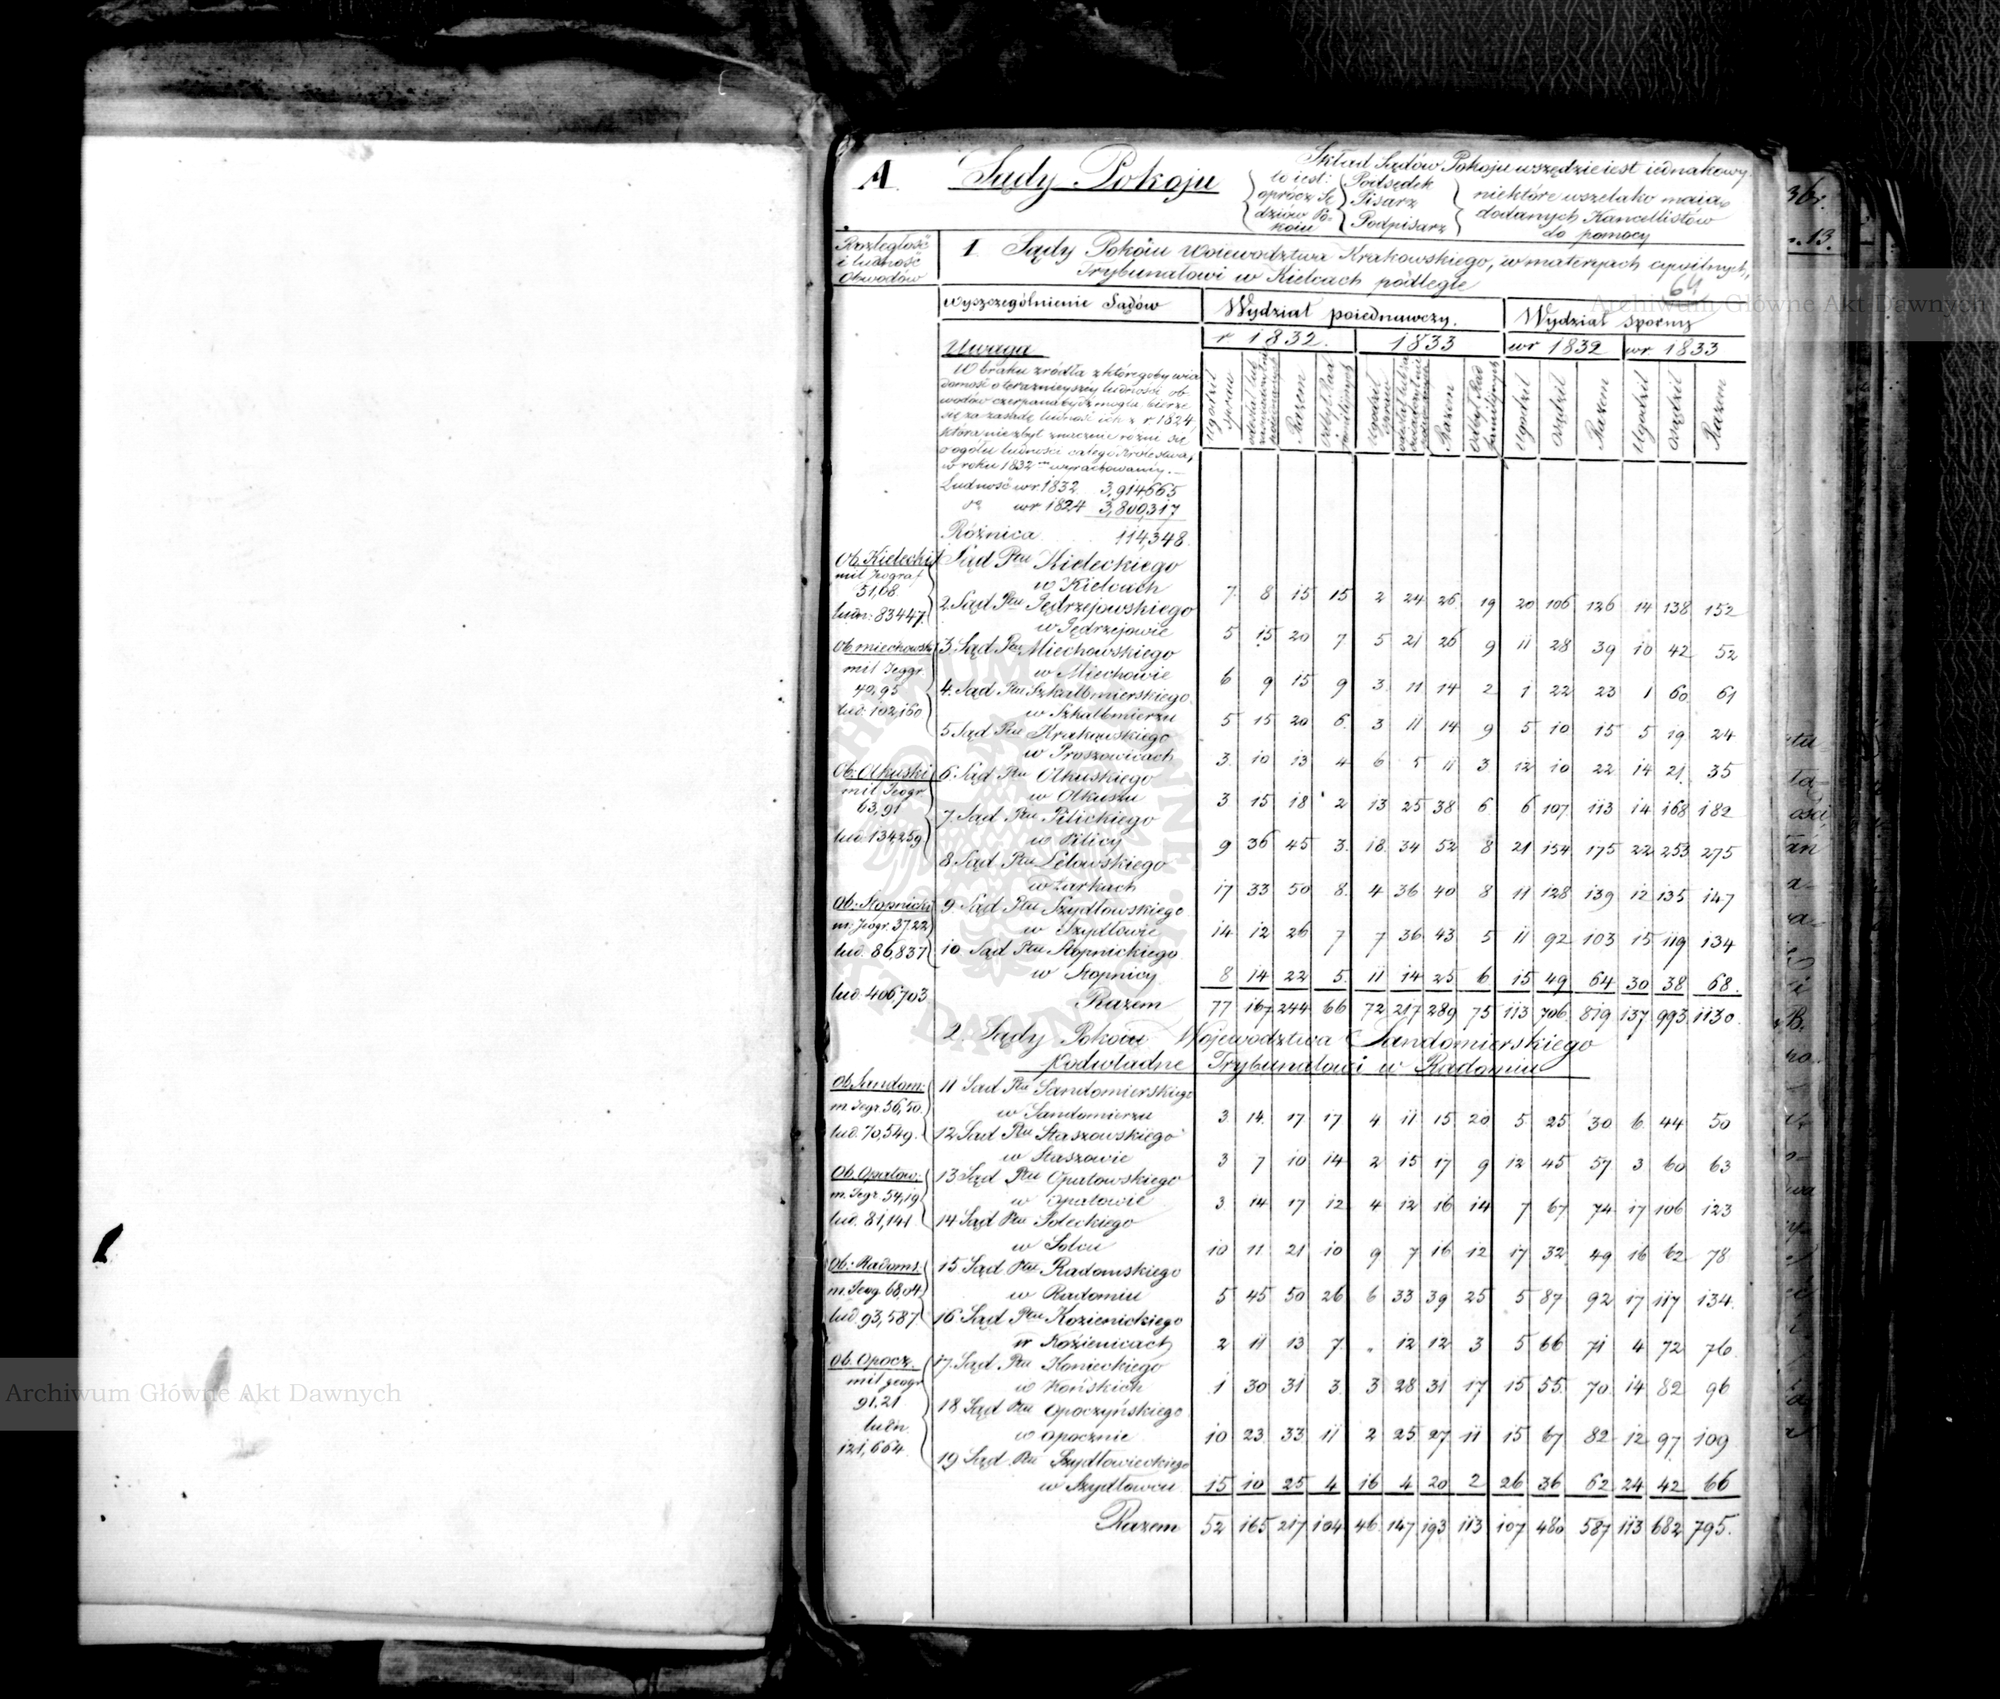 A. Sądy Pokoju
Skład Sądów Pokoju wszędzie iest iednakowy.
to iest: oprócz Sędziów Pokoiu
Podsędek
Pisarz
Podpisarz
niektóre wszelako maią
dodanych Kancellistów
do pomocy
Rozległość
i ludność
Obwodów
1 Sądy Pokóiu Woiewodztwa Krakowskiego, w materyach cywilnych,
Trybunałowi w Kielcach podległe
64
wyszczególnienie Sądów
Wydział poiednawczy.
Wydział sporny
r 1832.
1833
wr 1832
wr. 1833
Ugodził spraw
Razem
Odbył Rad familijnych
Ugodził spraw
Razem
Odbył Rad familijnych
Ugodził
osądził
Razem
Ugodził
osądził
Razem
Uwaga
W braku źródła z którégoby wia
domość o teraznieyszéy ludności ob
wodów czerpana bydź mogła, bierze
się za zasadę ludność ich z r 1824,
która niezbyt znacznie rożni się
o ogółu ludności całego Królestwa,
w roku 1832 wyrachowanéy.
Ludność wr. 1832. 3,914,665
do wr 1824 3,800,317
Róźnica 114,348.
Ob. Kielecki
mil Jeograf
51,08.
ludn: 83447.
Sąd Ptu Kieleckiego
w Kielcach 7. 8 15 15 2 24 26 19 20 106 126 14 138 152
2. Sąd Ptu Jędrzejowskiego
w Jędrzejowie 5 15 20 7. 5 21 26 9 11 28 39 10 42 52
Ob. miechowski
mil Jeogr.
42,95
lud: 102,160
3. Sąd Ptu Miechowskiego
w Miechowie 6 9 15 9 3. 11 14 2 1 22 23 1 60 61
4. Sąd Ptu Szkalbmierskiego
w Szkalbmierzu 5 15 20 6. 3 11 14 9 5 10 15 5 19 24
5. Sąd Ptu Krakowskiego
w Proszowicach 3. 10 13 4 6 5 11 3. 12 10 22 14 21. 35
Ob: Olkuski
mil Jeogr
63,91
lud 134259
6. Sąd Ptu Olkuskiego
w Olkuszu 3 15 18 2 13 25 38 6 6 107 113 14 168 182
7. Sąd Ptu Pilickiego
w Pilicy 9 36 45 3. 18 34 52 8 21 154 175 22 253 275
8. Sąd Ptu Lelowskiego
w Żarkach 17 33 50 8. 4 36 40 8 11 128 139 12 135 147
Ob: Stopnicki
m: Jeogr. 37.22
lud. 86,837
9. Sąd Ptu Szydłowskiego
w Szydłowie 14 12 26 7 7 36 43 5 11 92 103 15 119 134
10. Sąd Ptu Stopnickiego
w Stopnicy 8 14 22 5. 11 14 25 6 15 49 64 30 38 68.
lud. 406,703.
Razem 77 167 244 66 72 217 289 75 113 706 819 137 993 1130.
2. Sądy Pokóiu Wojewodztwa Sandomierskiego
Podwładne Trybunałowi w Radomiu
Ob. Sandom:
m. Jegr 56,50.
lud. 70,549.
11 Sąd Ptu Sandomierskiego
w Sandomierzu 3 14. 17 17 4 11 15 20 5 25 30 6. 44 50
12 Sąd Ptu Staszowskiego
w Staszowie 3 7 10 14 2 15 17 9 12 45 57 3 60 63
Ob. Opatow:
m. Jegr. 54,19
lud. 81,141
13 Sąd Ptu Opatowskiego
w Opatowie 3. 14 17 12 4 12 16 14 7 67 74 17 106 123
14 Sąd Ptu Soleckiego
w Solcu 10 11 21 10 9 7 16 12 17 32 49 16 62 78
Ob: Radoms.
m. Jeog 68,04
lud. 93,587
15 Sąd Ptu Radomskiego
w Radomiu 5 45 50 26 6 33 39 25 5 87 92 17 117 134.
16 Sąd Ptu Kozienickiego
w Kozienicach 2 11 13 7. " 12 12 3 5 66 71 4 72 76.
Ob. Opocz.
mil geogr
91,21
ludn.
121,664
17. Sąd Ptu Koneckiego
w Końskich 1 30 31 3. 3 28 31 17 15 55. 70. 14 82 96
18 Sąd Ptu Opoczyńskiego
w Opocznie 10 23. 33 11 2 25 27 11 15 67 82 12 97 109
19 Sąd Ptu Szydłowieckiego
w Szydłowcu 15 10 25 4 16 4 20 2 26 36 62 24 42 66
Razem 52 165 217 104 46 147 193 113 107 480 587 113 682 795.
Archiwum Główne Akt Dawnych
Archiwum Główne Akt Dawnych